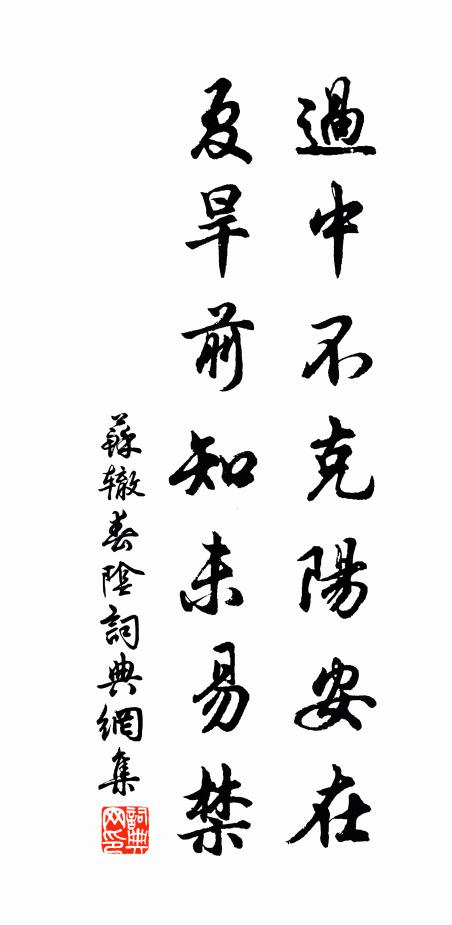 過中不克陽安在
夏旱前知未易禁
蘇辙春陰詞典網集
詞典
网印